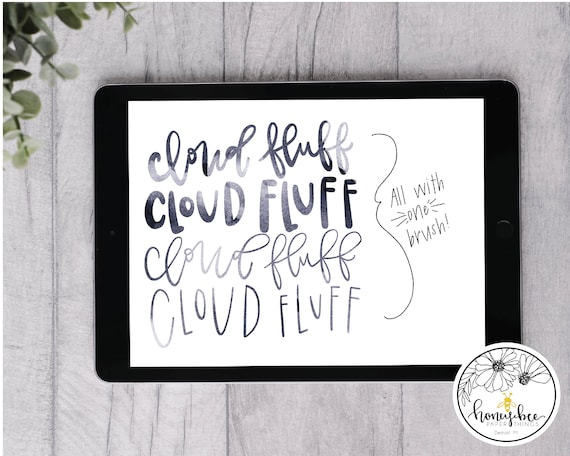 cloud fluff
CLOUD FLUFF
cloud fluff
CLOUD FLUFF
All with
one
brush!
honeybee
PAPER THINGS